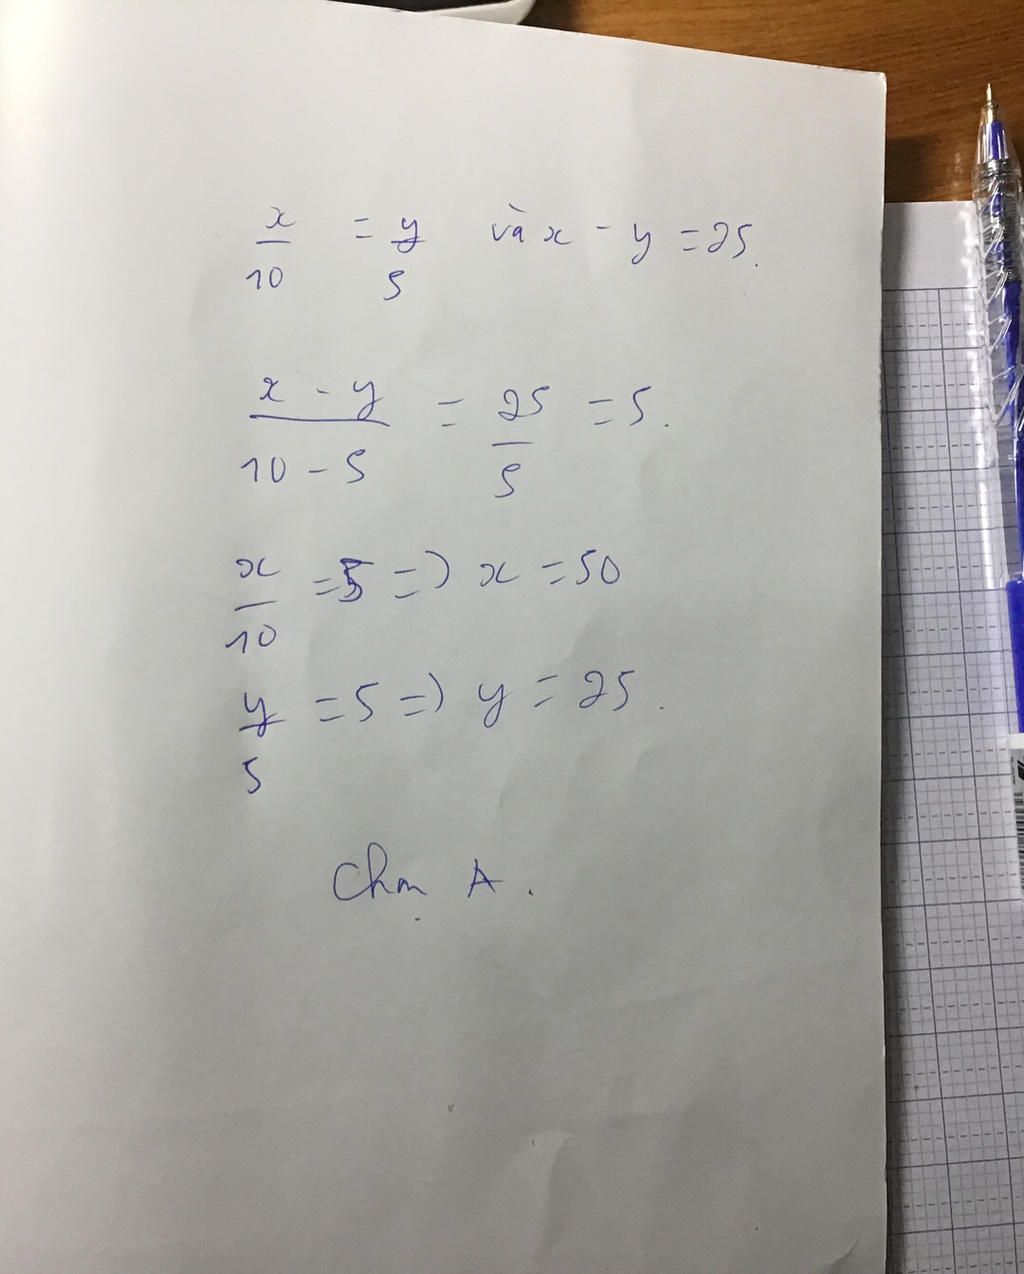 x/10 = y/5 và x - y = 25.
x - y/10 - 5 = 25/5 = 5.
x/10 = 5 => x = 50
y/5 = 5 => y = 25.
Chọn A.